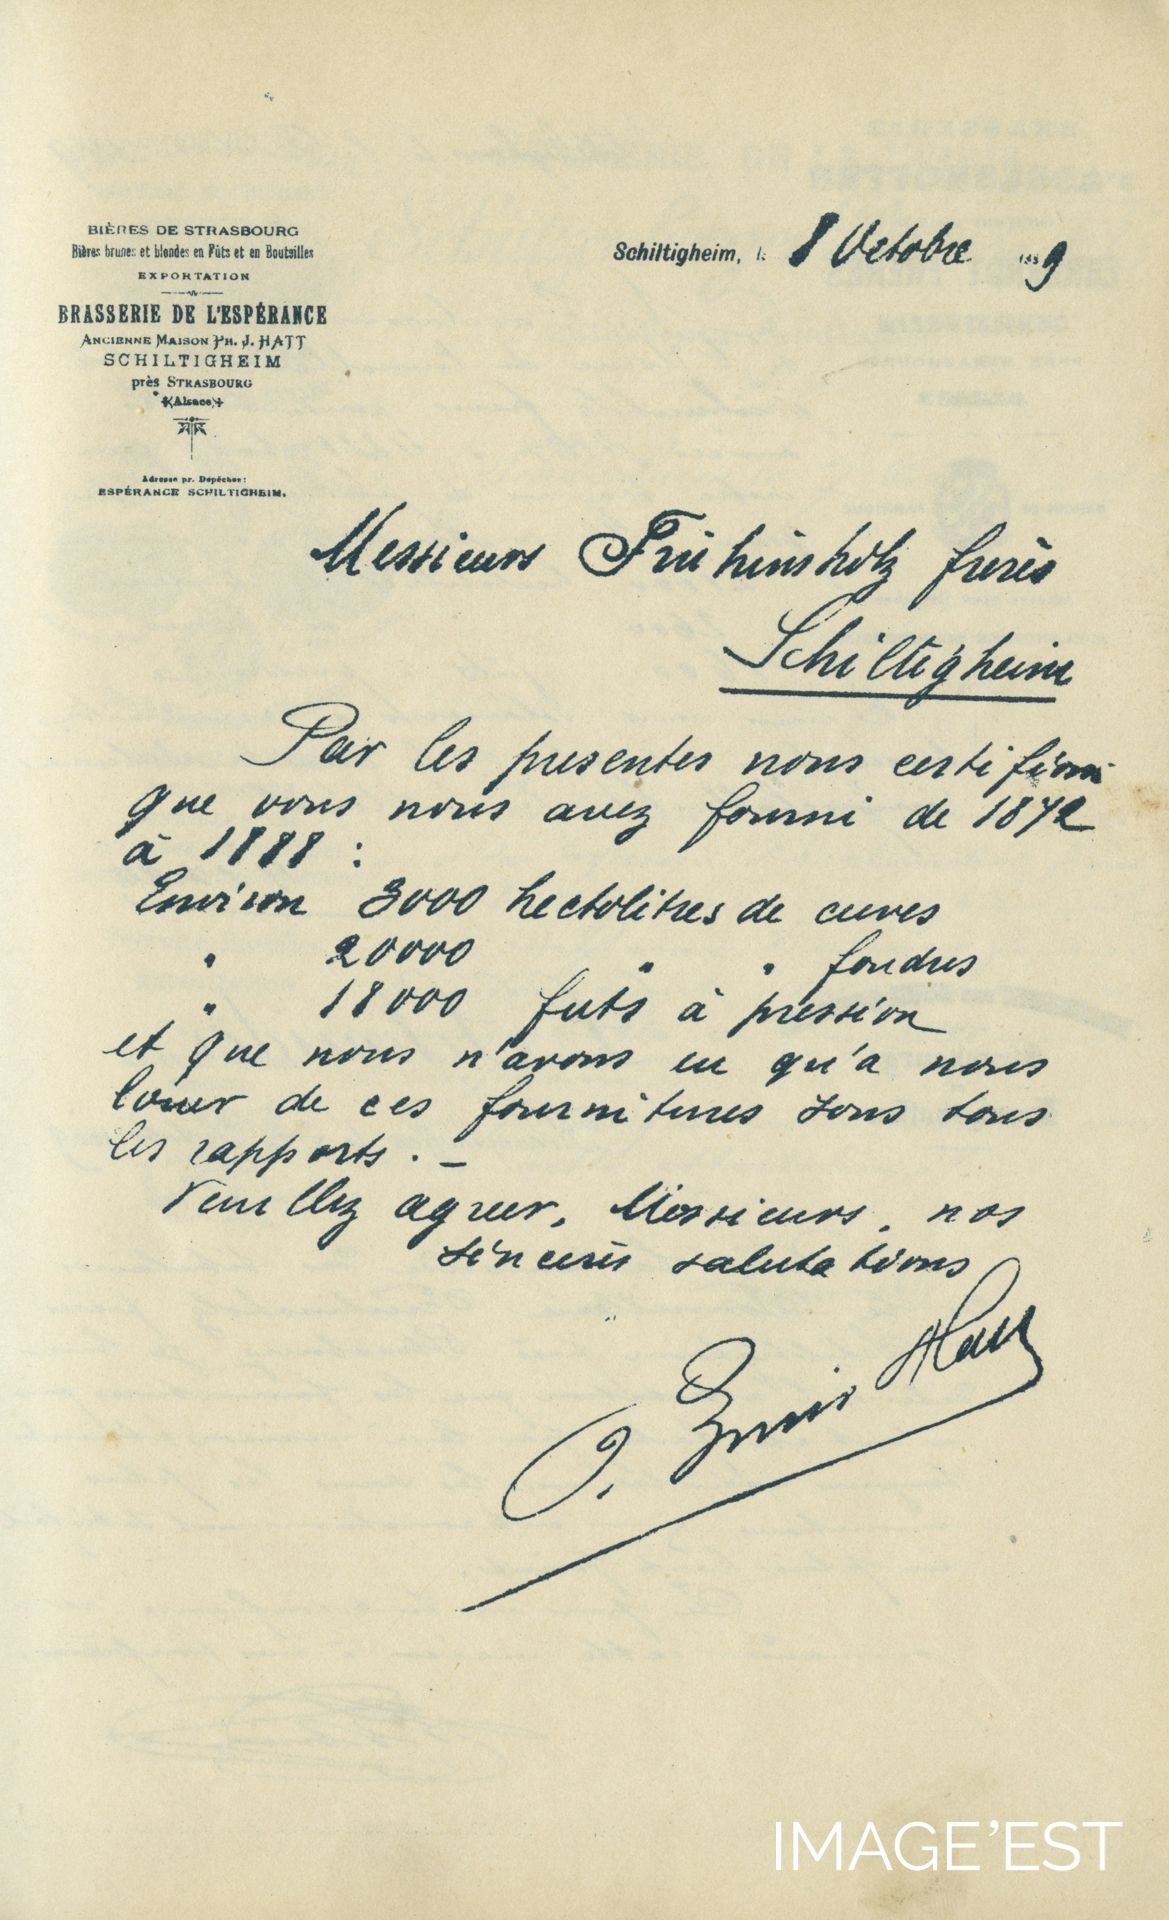 BIÈRES DE STRASBOURG
Bières brunes et blondes en Fûts et en Bouteilles
EXPORTATION
BRASSERIE DE L'ESPÉRANCE
ANCIENNE MAISON PH. J. HATT
SCHILTIGHEIM
près STRASBOURG
(Alsace)
Adresse pr. Dépêches:
ESPÉRANCE SCHILTIGHEIM.
Schiltigheim, le 8 Octobre 1889
Messieurs Frühinsholz frères
Schiltigheim
Par les presentes nous certifions
que vous nous avez fourni de 1872
à 1888 :
Environ 3000 hectolitres de cuves
" 20000 " " foudres
" 18000 futs à pression
et que nous n'avons eu qu'a nous
louer de ces fournitures sous tous
les rapports. _
Veuillez agreer, Messieurs, nos
sincères salutations
IMAGE'EST